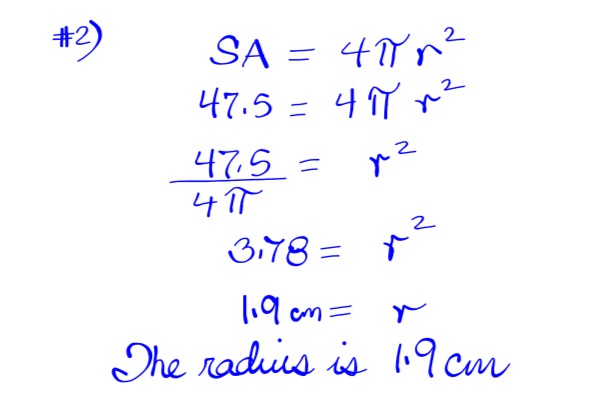 #2)
SA = 4πr²
47.5 = 4πr²
47.5/4π = r²
3.78 = r²
1.9 cm = r
The radius is 1.9 cm